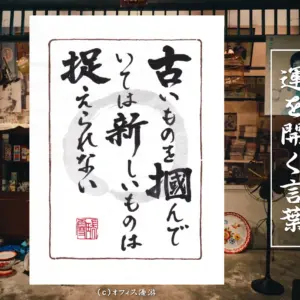 古いものを掴んで
いては新しいものは
捉えられない
運を開く言葉
(c)オフィス湧泪